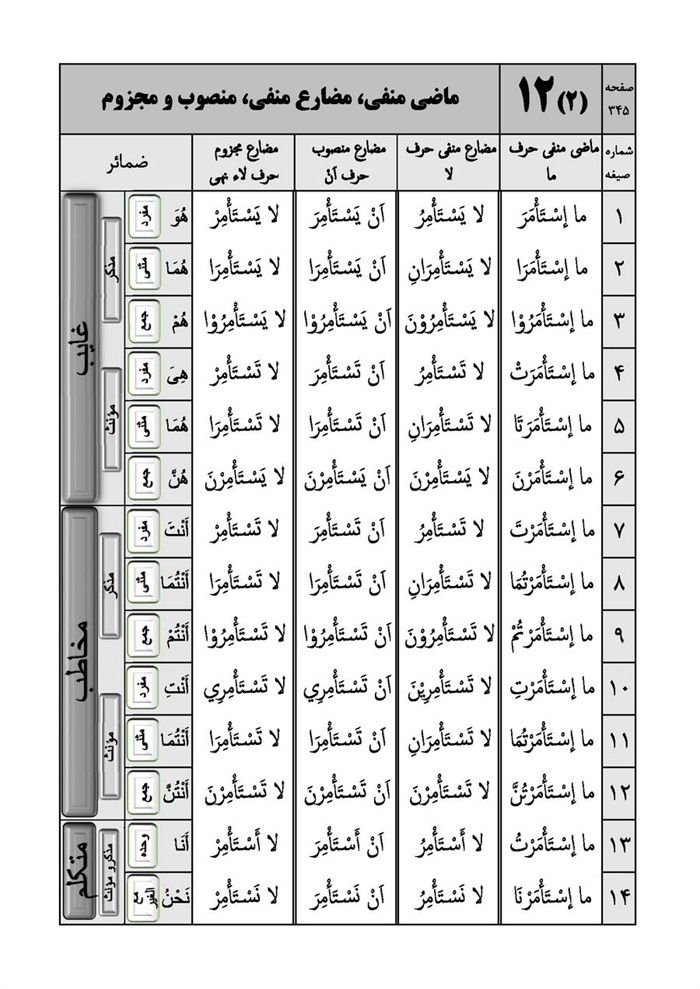 صفحه ۳۴۵ (۲) ۱۲ ماضی منفی، مضارع منفی، منصوب و مجزوم
شماره صیغه ماضی منفی حرف ما مضارع منفی حرف لا مضارع منصوب حرف اَنْ مضارع مجزوم حرف لاء نهی ضمائر
۱ ما إسْتَأْمَرَ لا يَسْتَأْمِرُ اَنْ يَسْتَأْمِرَ لا يَسْتَأْمِرْ هُوَ مفرد مذكر غايب
۲ ما إسْتَأْمَرَا لا يَسْتَأْمِرَانِ اَنْ يَسْتَأْمِرَا لا يَسْتَأْمِرَا هُمَا مثنى
۳ ما إسْتَأْمَرُوْا لا يَسْتَأْمِرُوْنَ اَنْ يَسْتَأْمِرُوْا لا يَسْتَأْمِرُوْا هُمْ جمع
۴ ما إسْتَأْمَرَتْ لا تَسْتَأْمِرُ اَنْ تَسْتَأْمِرَ لا تَسْتَأْمِرْ هِىَ مفرد مؤنث
۵ ما إسْتَأْمَرَتَا لا تَسْتَأْمِرَانِ اَنْ تَسْتَأْمِرَا لا تَسْتَأْمِرَا هُمَا مثنى
۶ ما إسْتَأْمَرْنَ لا يَسْتَأْمِرْنَ اَنْ يَسْتَأْمِرْنَ لا يَسْتَأْمِرْنَ هُنَّ جمع
۷ ما إسْتَأْمَرْتَ لا تَسْتَأْمِرُ اَنْ تَسْتَأْمِرَ لا تَسْتَأْمِرْ أَنْتَ مفرد مذكر مخاطب
۸ ما إسْتَأْمَرْتُمَا لا تَسْتَأْمِرَانِ اَنْ تَسْتَأْمِرَا لا تَسْتَأْمِرَا أَنْتُمَا مثنى
۹ ما إسْتَأْمَرْتُمْ لا تَسْتَأْمِرُوْنَ اَنْ تَسْتَأْمِرُوْا لا تَسْتَأْمِرُوْا أَنْتُمْ جمع
۱۰ ما إسْتَأْمَرْتِ لا تَسْتَأْمِرِيْنَ اَنْ تَسْتَأْمِرِي لا تَسْتَأْمِرِي أَنْتِ مفرد مؤنث
۱۱ ما إسْتَأْمَرْتُمَا لا تَسْتَأْمِرَانِ اَنْ تَسْتَأْمِرَا لا تَسْتَأْمِرَا أَنْتُمَا مثنى
۱۲ ما إسْتَأْمَرْتُنَّ لا تَسْتَأْمِرْنَ اَنْ تَسْتَأْمِرْنَ لا تَسْتَأْمِرْنَ أَنْتُنَّ جمع
۱۳ ما إسْتَأْمَرْتُ لا أَسْتَأْمِرُ اَنْ أَسْتَأْمِرَ لا أَسْتَأْمِرْ أَنَا وحده مذكر و مؤنث متكلم
۱۴ ما إسْتَأْمَرْنَا لا نَسْتَأْمِرُ اَنْ نَسْتَأْمِرَ لا نَسْتَأْمِرْ نَحْنُ مع الغير